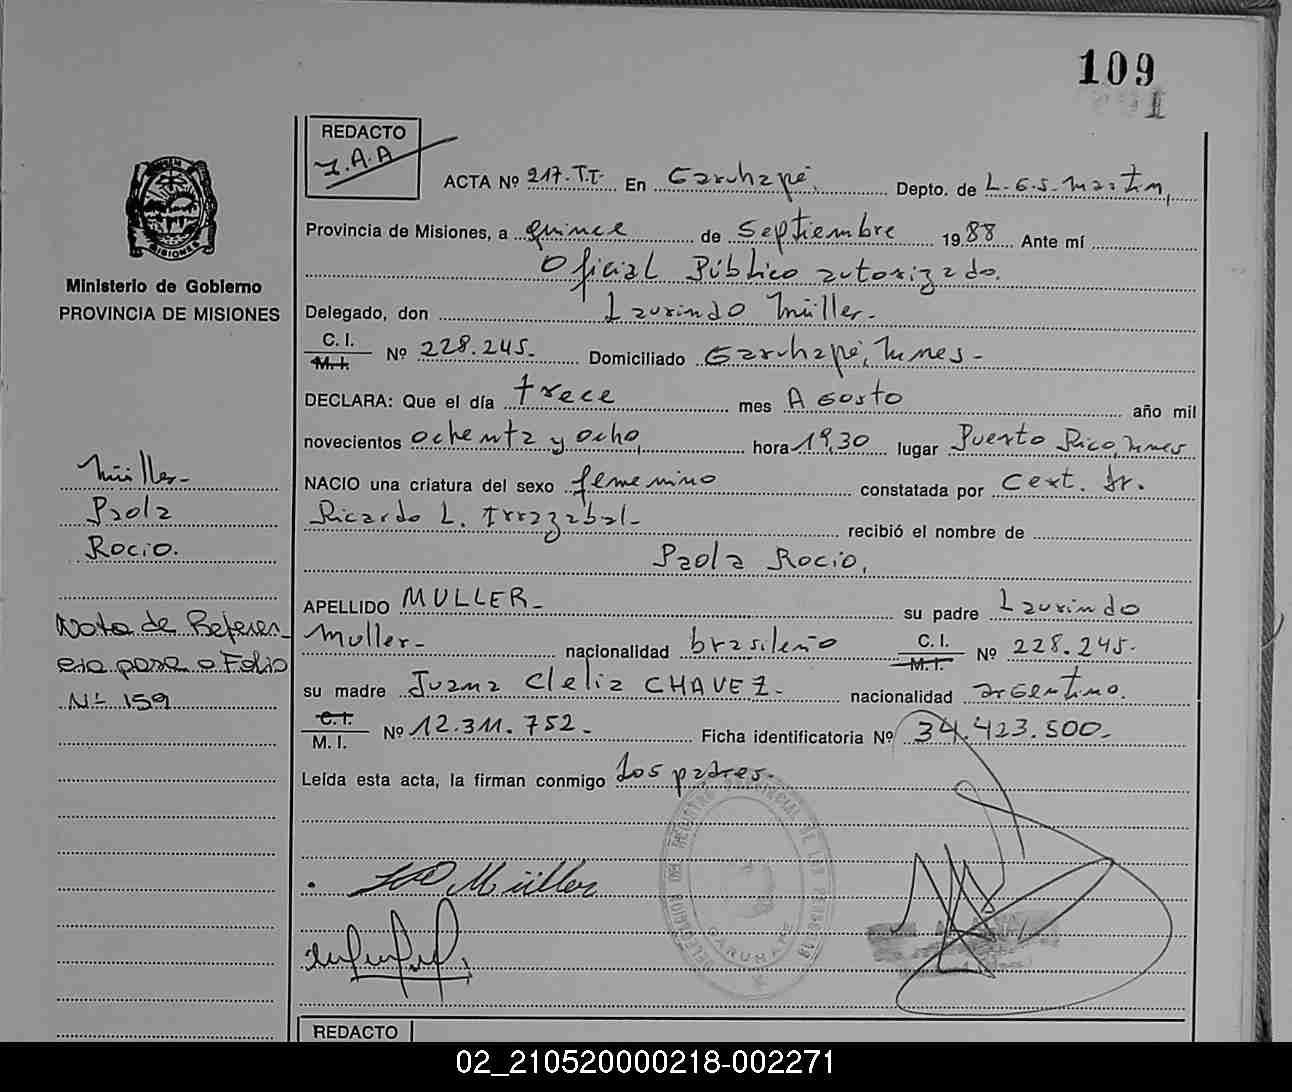 109
REDACTO
J.A.A
ACTA Nº 217.T.T. En Garuhapé, Depto. de L.G.S. Martin,
Provincia de Misiones, a quince de Septiembre 1988 Ante mí
Oficial Público autorizado.
Delegado, don Laurindo Müller.-
C. I.
M. I. Nº 228.245.- Domiciliado Garuhapé, Mnes-
DECLARA: Que el día trece mes Agosto año mil
novecientos ochenta y ocho, hora 19,30 lugar Puerto Rico, Mnes
NACIO una criatura del sexo femenino constatada por Cert. Dr.
Ricardo L. Irrazabal- recibió el nombre de
Paola Rocio,
APELLIDO MULLER- su padre Laurindo
Muller- nacionalidad brasileño C. I.
M. I. Nº 228.245.
su madre Juana Clelia CHAVEZ- nacionalidad argentino.
C. I.
M. I. Nº 12.311.752.- Ficha identificatoria Nº 34.423.500.-
Leída esta acta, la firman conmigo Los padres.-
Müller
GARUHAPE
REDACTO
Ministerio de Gobierno
PROVINCIA DE MISIONES
Müller-
Paola
Rocio.
Nota de Referen-
cia pasa a Folio
Nº 159
02_210520000218-002271